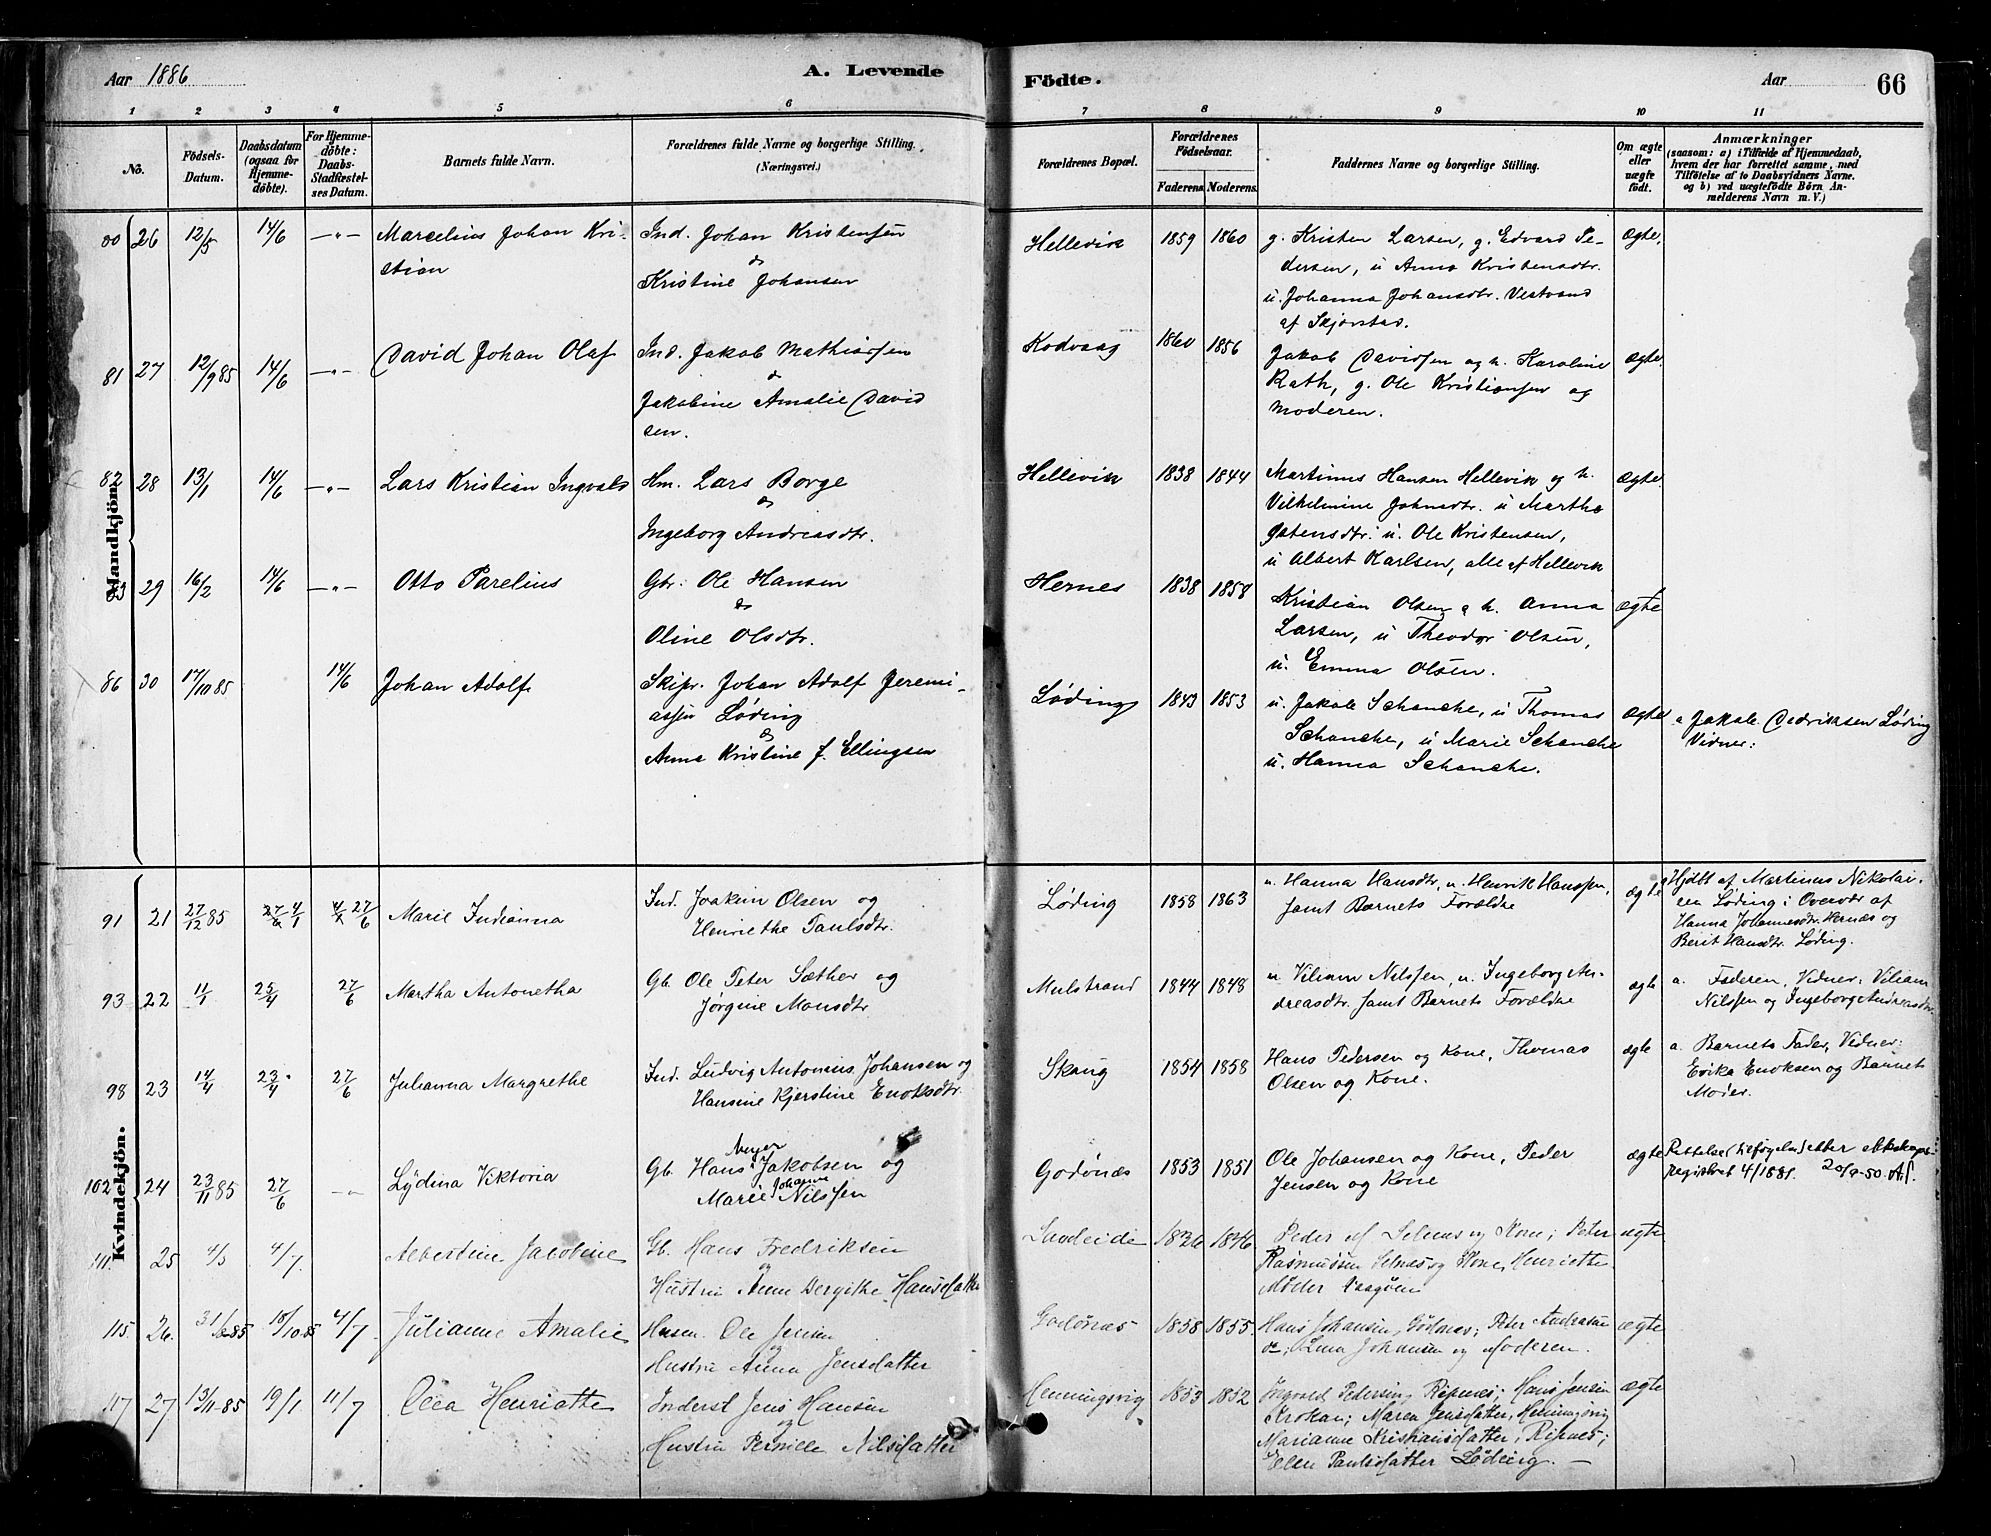 Aar 1886
A. Levende
Födte.
Aar
66
1 2 3 4 5 6 7 8 9 10 11
No.
Födsels-
Datum.
Daabsdatum
(ogsaa for
Hjemme-
døbte).
For Hjemme-
döbte:
Daabs-
Stadfæstel-
ses Datum.
Barnets fulde Navn.
Forældrenes fulde Navne og borgerlige Stilling.
(Næringsvei.)
Forældrenes Bopæl.
Forældrenes
Födselsaar.
Faderens. Moderens.
Faddernes Navne og borgerlige Stilling.
Om ægte
eller
uægte
födt.
Anmærkninger
(saasom: a) i Tilfælde af Hjemmedaab,
hvem der har forrettet samme, med
Tilföielse af to Daabsvidners Navne.
og b) ved uægtefödte Börn An-
melderens Navn m. V.)
Mandkjön.
26 12/5 14/6 —"— Marcelius Johan Kri-
stian
Ind. Johan Kristensen
&
Kristine Johansen
Hellevik 1859 1860
g. Kristen Larsen, g. Edvard Pe-
dersen, u Anna Kristensdtr.
u. Johanna Johansdtr. Vestvand
af Skjerstad.
Ægte.
81 27 12/9 85 14/6 —"— David Johan Olaf
Ind. Jakob Mathiassen
&
Jakobine Amalie David
sen.
Kodvaag 1860 1856
Jakob Davidsen og h. Karoline
Rath, g. Ole Kristiansen og
Moderen.
Ægte.
82 28 13/1 14/6 —"— Lars Kristian Ingvald
Hm. Lars Borge
&
Ingeborg Andreasdtr.
Hellevik 1838 1844
Martinus Hansen Hellevik og h.
Vilhelmine Johnsdtr. u Martha
u. Ole Kristensen,
u Albert Karlsen, alle af Hellevik
Ægte.
83 29 16/2 14/6 —"— Otto Parelius
Gbr. Ole Hansen
&
Oline Olsdtr.
Hernes 1838 1858
Kristian Olsen & h. Anna
Larsen, u Theodor Olsen,
u. Emma Olsen.
Ægte
86 30 17/10 85 14/6 Johan Adolf
Skipr. Johan Adolf Jeremi-
assen Løding
&
Anna Kristine f. Ellingsen
Løding 1843 1853
u. Jakob Schanche, u Thomas
Schanche, u Marie Schanche
u. Hanna Schanche.
Ægte
a Jakob Løding
Vidner:
Kvindekjön.
91 21 27/12 85 27/6 4/1 27/6 Marie Indianna
Ind. Joakim Olsen og
Henriethe Paulsdtr.
Løding 1858 1863
u. Hanna Hansdtr, u. Henrik Hanssen,
samt Barnets Forældre
ægte
Hjdbt af Martinus Nikolai-
sen Løding i Overvær af
Hanna Johannesdtr. Hernæs og
Berit Hansdtr. Løding.
93 22 11/1 25/4 27/6 Martha Antonetha
Gb. Ole Peter Sæther og
Jørgine Monsdtr.
Mulstrand 1844 1848
u. Viliam Nilssen, u. Ingeborg An-
dreasdtr. samt Barnets Forældre
ægte
a. Faderen, Vidner: Viliam
Nilssen og Ingeborg Andreasdtr.
98 23 14/4 23/4 27/6 Julianna Margrethe
Ind. Ludvig Antonius Johansen og
Hansine Kjerstine Enoksdtr.
Skaug 1854 1858
Hans Pedersen og Kone, Thomas
Olsen og Kone.
ægte
a. Barnets Fader, Vidner:
Erika Enoksen og Barnets
Moder.
102 24 23/11 85 27/6 —"— Lydina Viktoria
Meyer
Gb. Hans Jakobsen og
Johanne
Marie Nilssen
Godønæs 1853 1851
Ole Johansen og Kone, Peder
Jensen og Kone
ægte
Rettelse (tilføyelse) etter
registret 4/1881.
111. 25 4/5 4/7. Albertine Jacobine
Gb. Hans Fredriksen
og
Hustru Anne Bergithe Hansdatter
1826 1846
Peder af Selnæs og Kone; Peter
Rasmussen Selnæs og Kone, Henriette
ægte
115 26. 31/8-85 18/10.85 4/7. Julianne Amalie
Husm. Ole Jensen
og
Hustru Anna Jensdatter
Godønæs 1858 1855.
Hans Johansen, Godønæs; Peter Andreasen
do; Lina Johansen og Moderen.
ægte
117 27 13/11-85 19/1 11/7 Olea Henriette
Inderst Jens Hansen
og
Hustru Pernille Nilsdatter
Henningsvig 1853 1852
Ingvald Pedersen, Ripnes; Hans Jensen
Krokan; Maren Jensdatter, Henningsvig
Marianne Kristiansdatter, Ripnes;
Ellen Paulsdatter Løding. —
ægte